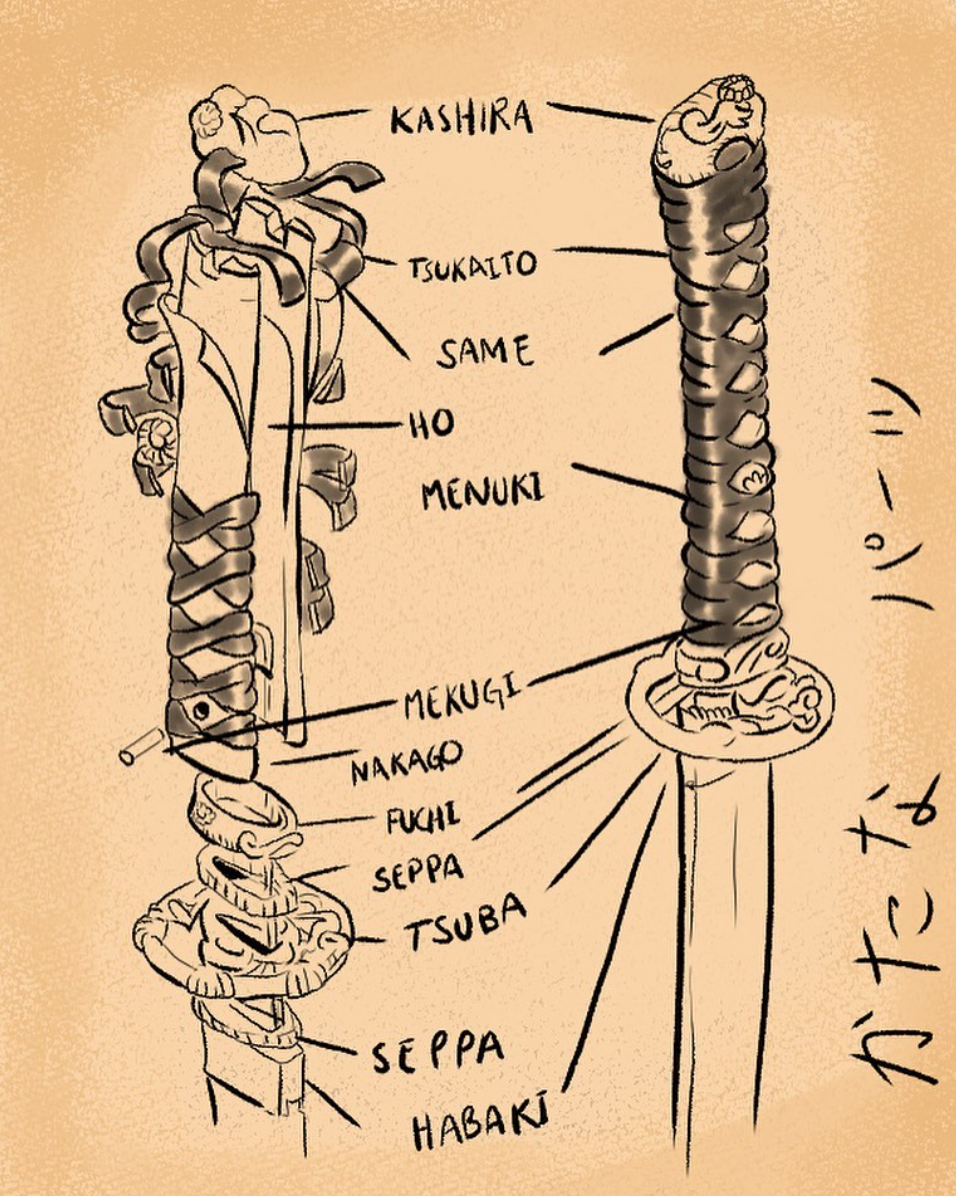 KASHIRA
TSUKAITO
SAME
HO
MENUKI
MEKUGI
NAKAGO
FUCHI
SEPPA
TSUBA
SEPPA
HABAKI
かたな パーツ